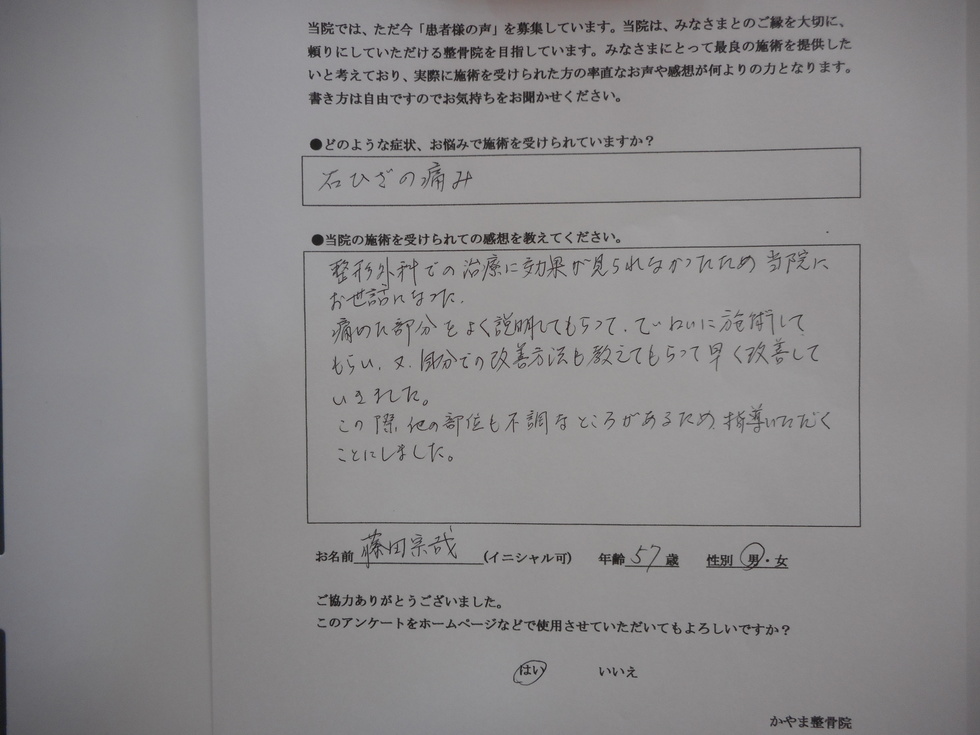 当院では、ただ今「患者様の声」を募集しています。当院は、みなさまとのご縁を大切に、
頼りにしていただける整骨院を目指しています。みなさまにとって最良の施術を提供した
いと考えており、実際に施術を受けられた方の率直なお声や感想が何よりの力となります。
書き方は自由ですのでお気持ちをお聞かせください。
●どのような症状、お悩みで施術を受けられていますか？
右ひざの痛み
●当院の施術を受けられての感想を教えてください。
整形外科での治療に効果が見られなかったため当院に
お世話になった.
痛めた部分をよく説明してもらって、ていねいに施術して
もらい、又、自分での改善方法も教えてもらって早く改善して
いきました。
この際他の部位も不調なところがあるため指導いただく
ことにしました。
お名前 藤田宗哉 (イニシャル可) 年齢 57 歳 性別 男・女
ご協力ありがとうございました。
このアンケートをホームページなどで使用させていただいてもよろしいですか？
はい いいえ
かやま整骨院